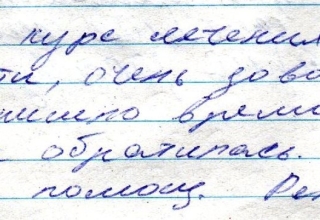 курс лечения
ти, очень дово
время
обратилась.
помощ. Рек